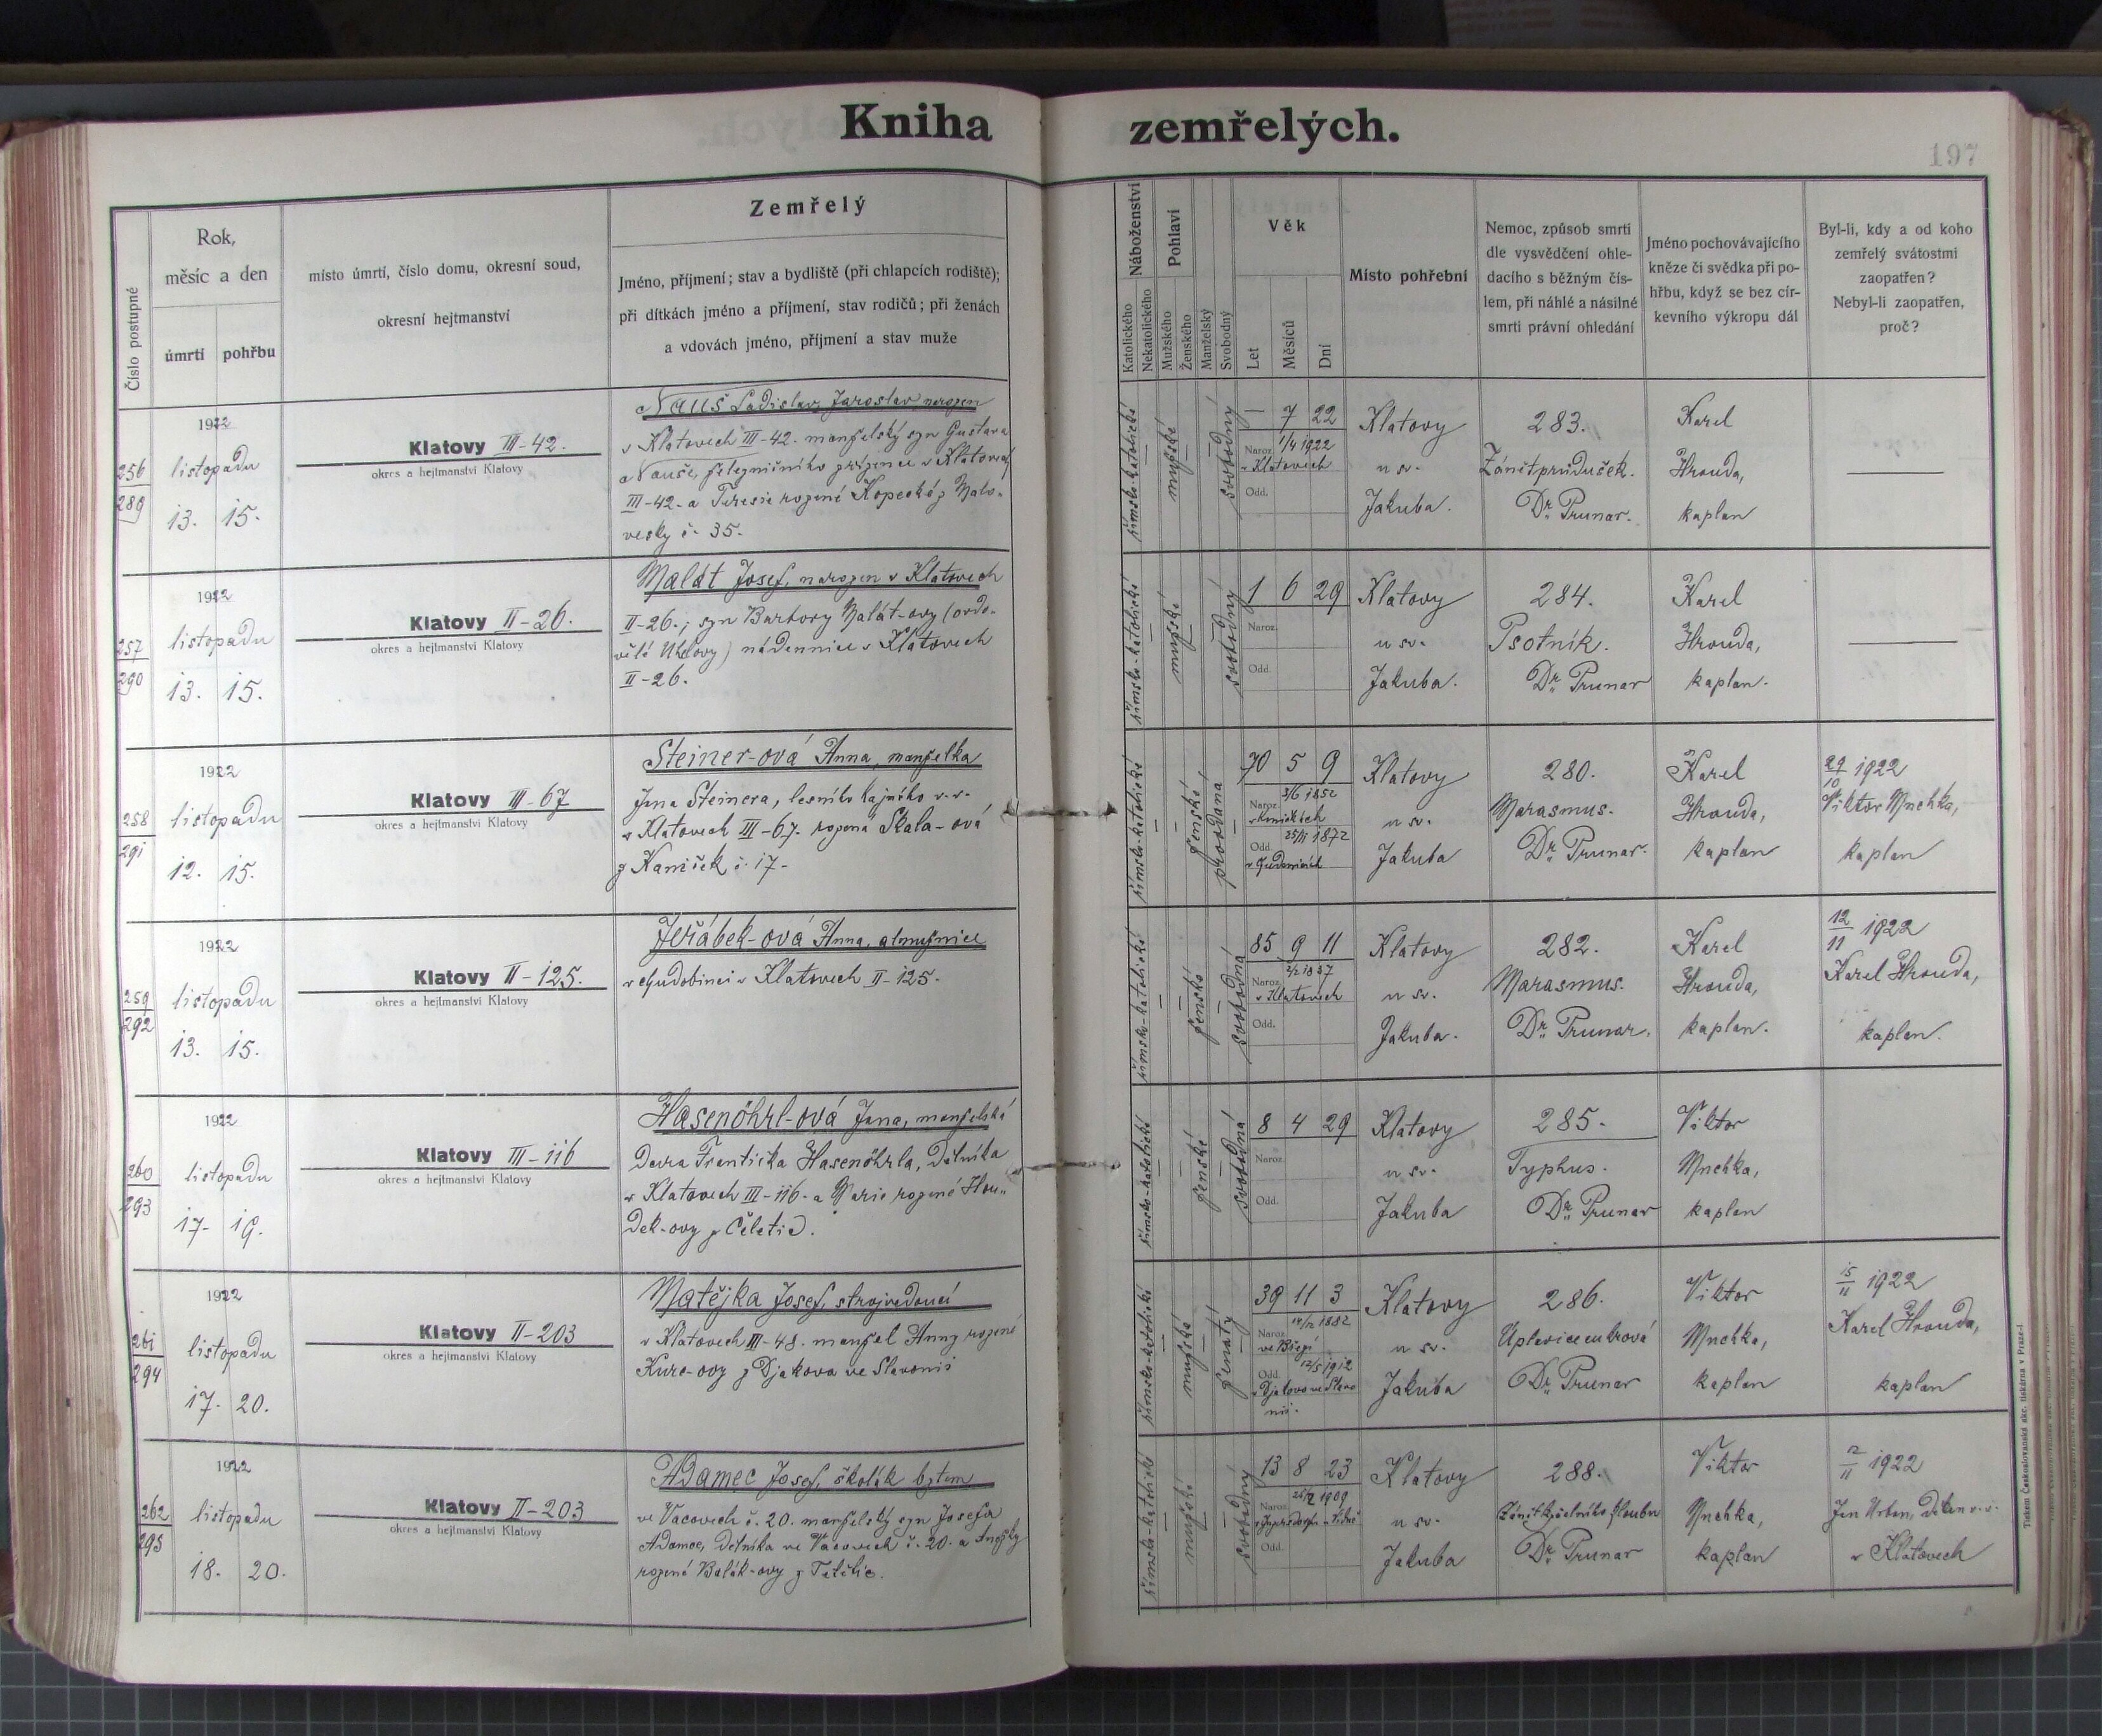 Kniha zemřelých.
197
Číslo postupné
Rok,
měsíc a den
úmrtí
pohřbu
místo úmrtí, číslo domu, okresní soud,
okresní hejtmanství
Zemřelý
Jméno, příjmení; stav a bydliště (při chlapcích rodiště);
při dítkách jméno a příjmení, stav rodičů; při ženách
a vdovách jméno, příjmení a stav muže
Náboženství
Katolického
Nekatolického
Pohlaví
Mužského
Ženského
Manželský
Svobodný
Věk
Let
Měsíců
Dní
Místo pohřební
Nemoc, způsob smrti
dle vysvědčení ohle-
dacího s běžným čís-
lem, při náhlé a násilné
smrti právní ohledání
Jméno pochovávajícího
kněze či svědka při po-
hřbu, když se bez cír-
kevního výkropu dál
Byl-li, kdy a od koho
zemřelý svátostmi
zaopatřen?
Nebyl-li zaopatřen,
proč?
256
289
1922
listopadu
13. 15.
Klatovy III-42.
okres a hejtmanství Klatovy
Nauš Ladislav, Jaroslav, narozen
v Klatovech III-42. manželský syn Gustava
Nauše, železničního zřízence v Klatovech
III-42. a Terezie rozené Kopecké z Malo-
vesky č. 35.
římsko-katolické
mužské
svobodný
— 7 22
Naroz. 1/4 1922
v Klatovech
Odd.
Klatovy
u sv.
Jakuba.
283.
Zánět průdušek.
Dr. Prunar.
Karel
Hrouda,
kaplan
257
290
1922
listopadu
13. 15.
Klatovy II-26.
okres a hejtmanství Klatovy
Malát Josef, narozen v Klatovech
II-26.; syn Barbory Malát-ovy (ovdo-
vělé) nádennice v Klatovech
II-26.
římsko-katolické
mužské
svobodný
1 6 29
Naroz.
Odd.
Klatovy
u sv.
Jakuba.
284.
Psotník.
Dr. Prunar
Karel
Hrouda,
kaplan.
258
291
1922
listopadu
12. 15.
Klatovy III-67
okres a hejtmanství Klatovy
Steiner-ová Anna, manželka
Jana Steinera, lesního hajného v.v.
v Klatovech III-67. rozená Skala-ová
z Kaniček č. 17.
římsko-katolické
ženské
provdaná
70 5 9
Naroz. 3/6 1852
Odd. 25/11 1872
Klatovy
u sv.
Jakuba
280.
Marasmus.
Dr. Prunar.
Karel
Hrouda,
kaplan
29/10 1922
Viktor Mnchka,
kaplan
259
292
1922
listopadu
13. 15.
Klatovy II-125.
okres a hejtmanství Klatovy
Jeřábek-ová Anna, almužnice
v chudobinci v Klatovech II-125.
římsko-katolické
ženské
svobodná
85 9 11
Naroz. 2/2 1837
v Klatovech
Odd.
Klatovy
u sv.
Jakuba.
282.
Marasmus.
Dr. Prunar.
Karel
Hrouda,
kaplan.
12/11 1922
Karel Hrouda,
kaplan.
260
293
1922
listopadu
17. 19.
Klatovy III-116
okres a hejtmanství Klatovy
Hasenöhrl-ová Jana, manželská
dcera Františka Hasenöhrla, dělníka
v Klatovech III-116. a Marie rozené Hou-
dek-ovy z Čeletic.
římsko-katolické
ženské
svobodná
8 4 29
Naroz.
Odd.
Klatovy
u sv.
Jakuba
285.
Typhus.
Dr. Prunar
Viktor
Mnchka,
kaplan
261
294
1922
listopadu
17. 20.
Klatovy II-203
okres a hejtmanství Klatovy
Matějka Josef, strojvedoucí
v Klatovech III-48. manžel Anny rozené
Kurc-ovy z Djakova ve Slavonii
římsko-katolické
mužské
ženatý
39 11 3
Naroz. 14/12 1882
Odd. 12/5 1912
v Djakovo ve Slavo
nii.
Klatovy
u sv.
Jakuba
286.
Úplavice cukrová
Dr. Prunar
Viktor
Mnchka,
kaplan
15/11 1922
Karel Hrouda,
kaplan
262
295
1922
listopadu
18. 20.
Klatovy II-203
okres a hejtmanství Klatovy
Adamec Josef, školák bytem
ve Vacovech č. 20. manželský syn Josefa
Adamce, dělníka ve Vacovech č. 20. a Anežky
rozené Balák-ovy z Tětětic.
římsko-katolické
mužské
svobodný
13 8 23
Naroz. 1909
Odd.
Klatovy
u sv.
Jakuba
288.
Zánět kyčelního kloubu
Dr. Prunar
Viktor
Mnchka,
kaplan
12/11 1922
Jan Urban, děkan v.v.
v Klatovech
Tiskem Československá akc. tiskárna v Praze-I